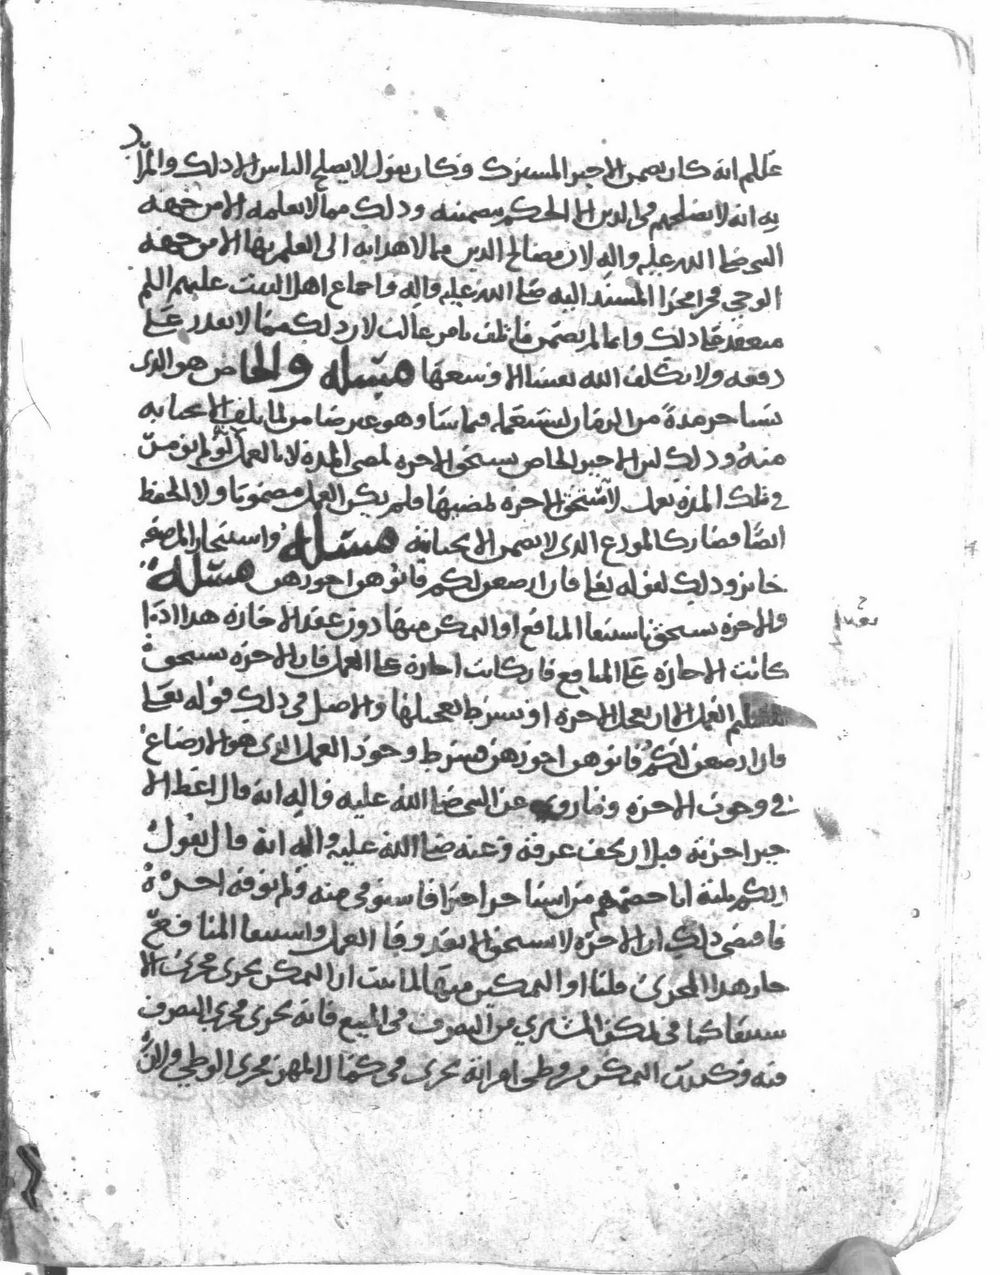 عليلم انه كان يضمن الاجير المشترك وكان يقول لا يصلح الناس الا ذلك والمراد
به انه لا يصلحهم في الدين الا الحكم بتضمينه وذلك مما لا يعلمه الا من جهة
النبي صلى الله عليه واله لان مصالح الدين مما لا هداية الى العلم بها الا من جهة
الوحي فجرا مجرا المسند اليه صلى الله عليه واله واجماع اهل البيت عليهم اللم
منعقد على ذلك وانما لم يضمن ما تلف بامر غالب لان ذلك مما لا يقدر على
دفعه ولا يكلف الله نفسا الا وسعها مسله والخاص هو الذي
يستاجر مدة من الزمان ليستعمله فيما شا وهو غير ضامن لما تلف الا بجنايه
منه وذلك لان الاجير الخاص يستحق الاجره لمضي المدة لا بالعمل لو لم يؤمر
في تلك المدة بعمل لاستحق الاجرة لمضيها فلم يكن العمل مضمونا ولا الحفظ
ايضا فصار كالمودع الذي لا يضمن الا بجنايته مسله واستيجار المرضعه
جايز وذلك لقوله تعلى فان ارضعن لكم فاتوهن اجورهن مسله
والاجره تستحق باستيفا المنافع او التمكن منها دون عقد الاجارة هذا اذا
كانت الاجارة على المنافع فان كانت اجارة على العمل فان الاجرة تستحق
بتسليم العمل الا ان يعجل الاجره او يشرط تعجيلها والاصل في ذلك قوله تعلى
فان ارضعن لكم فاتوهن اجورهن فشرط وجود العمل الذي هو الارضاع
في وجوب الاجره وما روي عن النبي صلى الله عليه واله انه قال اعط الا
جير اجرته قبل ان يجف عرقه وعنه صلى الله عليه واله انه قال يقول
ربكم ثلثة انا خصمهم من استاجر اجيرا فاستوفى منه ولم يوفه اجره
فاقتضى ذلك ان الاجره لا تستحق الا بعد وفا العمل واستيفا المنافع
جار هذا المجرى قلنا او التمكين منها لما ثبت ان التمكن يجرى مجرى الا
ستيفا كما في تمكن المشتري من التصرف في المبيع فانه يجرى مجرى التصرف
فيه وكذلك التمكن من وطي امراته يجرى في كمال المهر مجرى الوطي